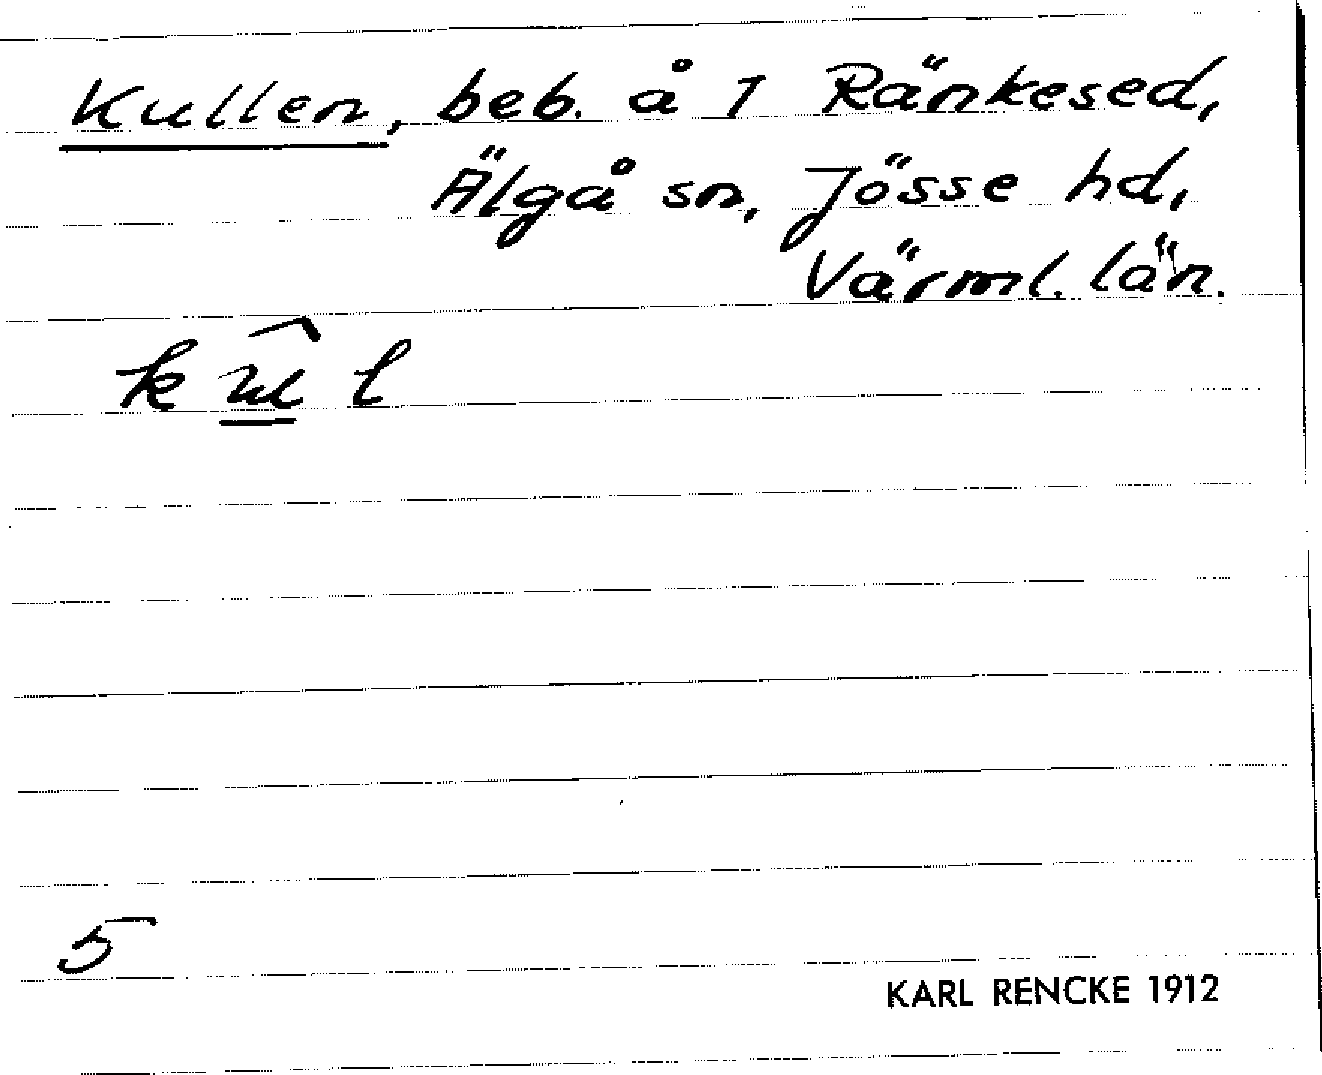 Kullen, beb. å 1 Ränkesed,
Älgå sn, Jösse hd,
Värml. län.
k û l
5
KARL RENCKE 1912